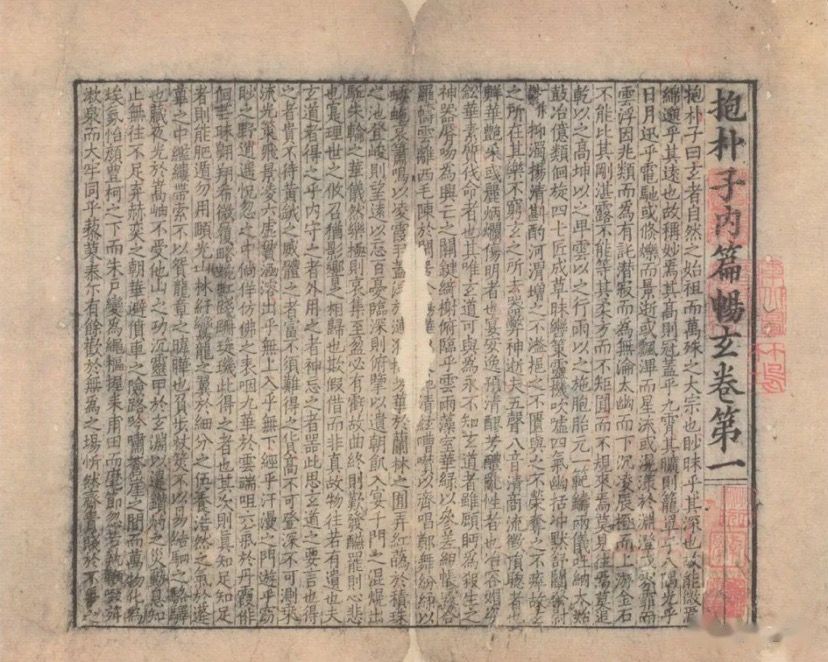 抱朴子內篇暢玄卷第一
抱朴子曰玄者自然之始祖而萬殊之大宗也眇昧乎其深也故能微焉
綿邈乎其遠也故稱妙焉其高則冠蓋乎九霄其曠則籠罩乎八隅光乎
日月迅乎電馳或倏爍而景逝或飄滭而星流或滉漾於淵澄或雰霏而
雲浮因兆類而為有託潛寂而為無淪太幽而下沉凌辰極而上游金石
不能比其剛湛露不能等其柔方而不矩圓而不規來焉莫見往焉莫追
乾以之高坤以之卑雲以之行雨以之施胞胎元一範鑄兩儀吐納太始
鼓冶億類佪旋四七匠成草昧轡策靈機吹噓四氣幽括沖默舒闡粲尉
抑濁揚清斟酌河渭增之不溢挹之不匱與之不榮奪之不瘁故玄
之所在其樂不窮玄之所去器弊神逝夫五聲八音清商流徵損聰者也
鮮華艷采或麗炳爛傷明者也宴安逸豫清醪芳醴亂性者也冶容媚姿
鉛華素質伐命者也其唯玄道可與為永不知玄道者雖顧眄為殺生之
神器脣吻為興亡之關鍵綺榭俯臨乎雲雨藻室華綠以參差組帳霧合
羅幬雲離西毛陳於閒房金華以交馳清絃嘈囋以齊唱鄭舞紛緌以
哀簫鳴以凌霞羽蓋浮華於蘭林之囿弄紅葩於積珠
之池登峻則望遠以忘百憂臨深則俯擥以遺朝飢入宴千門之混熀出
驅朱輪之華儀然樂極則哀集至盈必有虧故曲終則歎發醼罷則心悲
也寔理世之攸召猶影響之相歸也欺假借而非真故物往若有遺也夫
玄道者得之乎內守之者外用之者神忘之者器此思玄道之要言也得
之者貴不待黃鉞之威體之者富不須難得之貨高不可登深不可測乘
流光策飛景凌六虛貫涵溶出乎無上入乎無下經乎汗漫之門遊乎窈
眇之野逍遙恍惚之中倘佯彷彿之表咽九華於雲端咀六氣於丹霞徘
徊茫昧翱翔希微履略蜿虹踐跚琁璣此得之者也其次則真知足知足
者則能肥遁勿用頤光山林紆鸞龍之翼於細分之伍養浩然之氣於蓬
蓽之中繿縷帶索不以貿龍章之暐曄也負步杖筴不以易結駟之駱驛
也藏夜光於嵩岫不受他山之功沉靈甲於玄淵以違鑽灼之災動息知
止無往不足弃赫奕之朝華避僨車之險路吟嘯蒼崖之間而萬物化為
埃氛怡顏豐柯之下而朱戶變為繩樞握耒甫田而麾節忽若執鞭啜荈
漱泉而大牢同乎藜藿泰尒有餘歡於無為之場忻然齊貴賤於不爭之